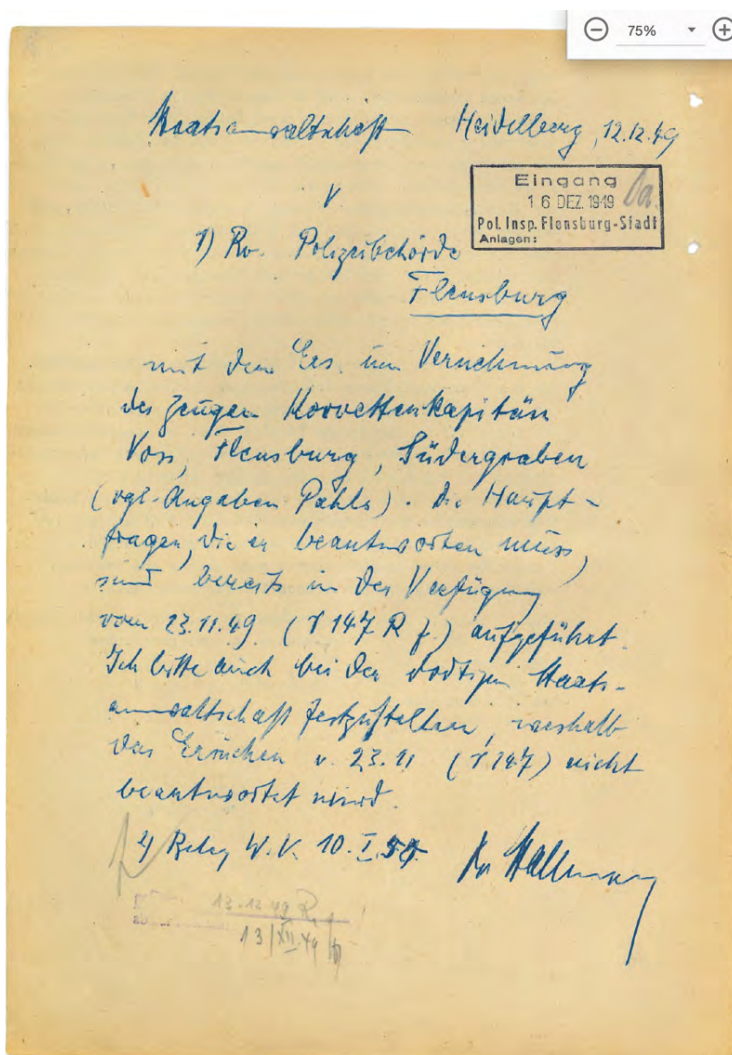 75%
Staatsanwaltschaft Heidelberg, 12.12.49
V
Eingang
16 DEZ. 1949
Pol. Insp. Flensburg-Stadt
Anlagen:
1) Rv. Polizeibehörde
Flensburg
mit dem Ers. um Vernehmung
des Zeugen Korvettenkapitän
Voss, Flensburg, Südergraben
(vgl. Angaben Pahls). Die Haupt-
fragen, die er beantworten muss,
sind bereits in der Verfügung
vom 23.11.49 (S 147 R f.) aufgeführt.
Ich bitte auch bei der dortigen Staats-
anwaltschaft festzustellen, weshalb
das Ersuchen v. 23.11 (S 147) nicht
beantwortet wird.
W.V. 10.I.50
13.12.49
13/XII.49